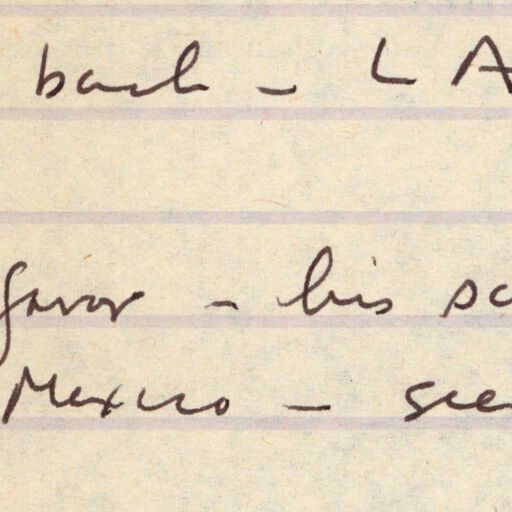 back - LA
favor - his
Mexico -